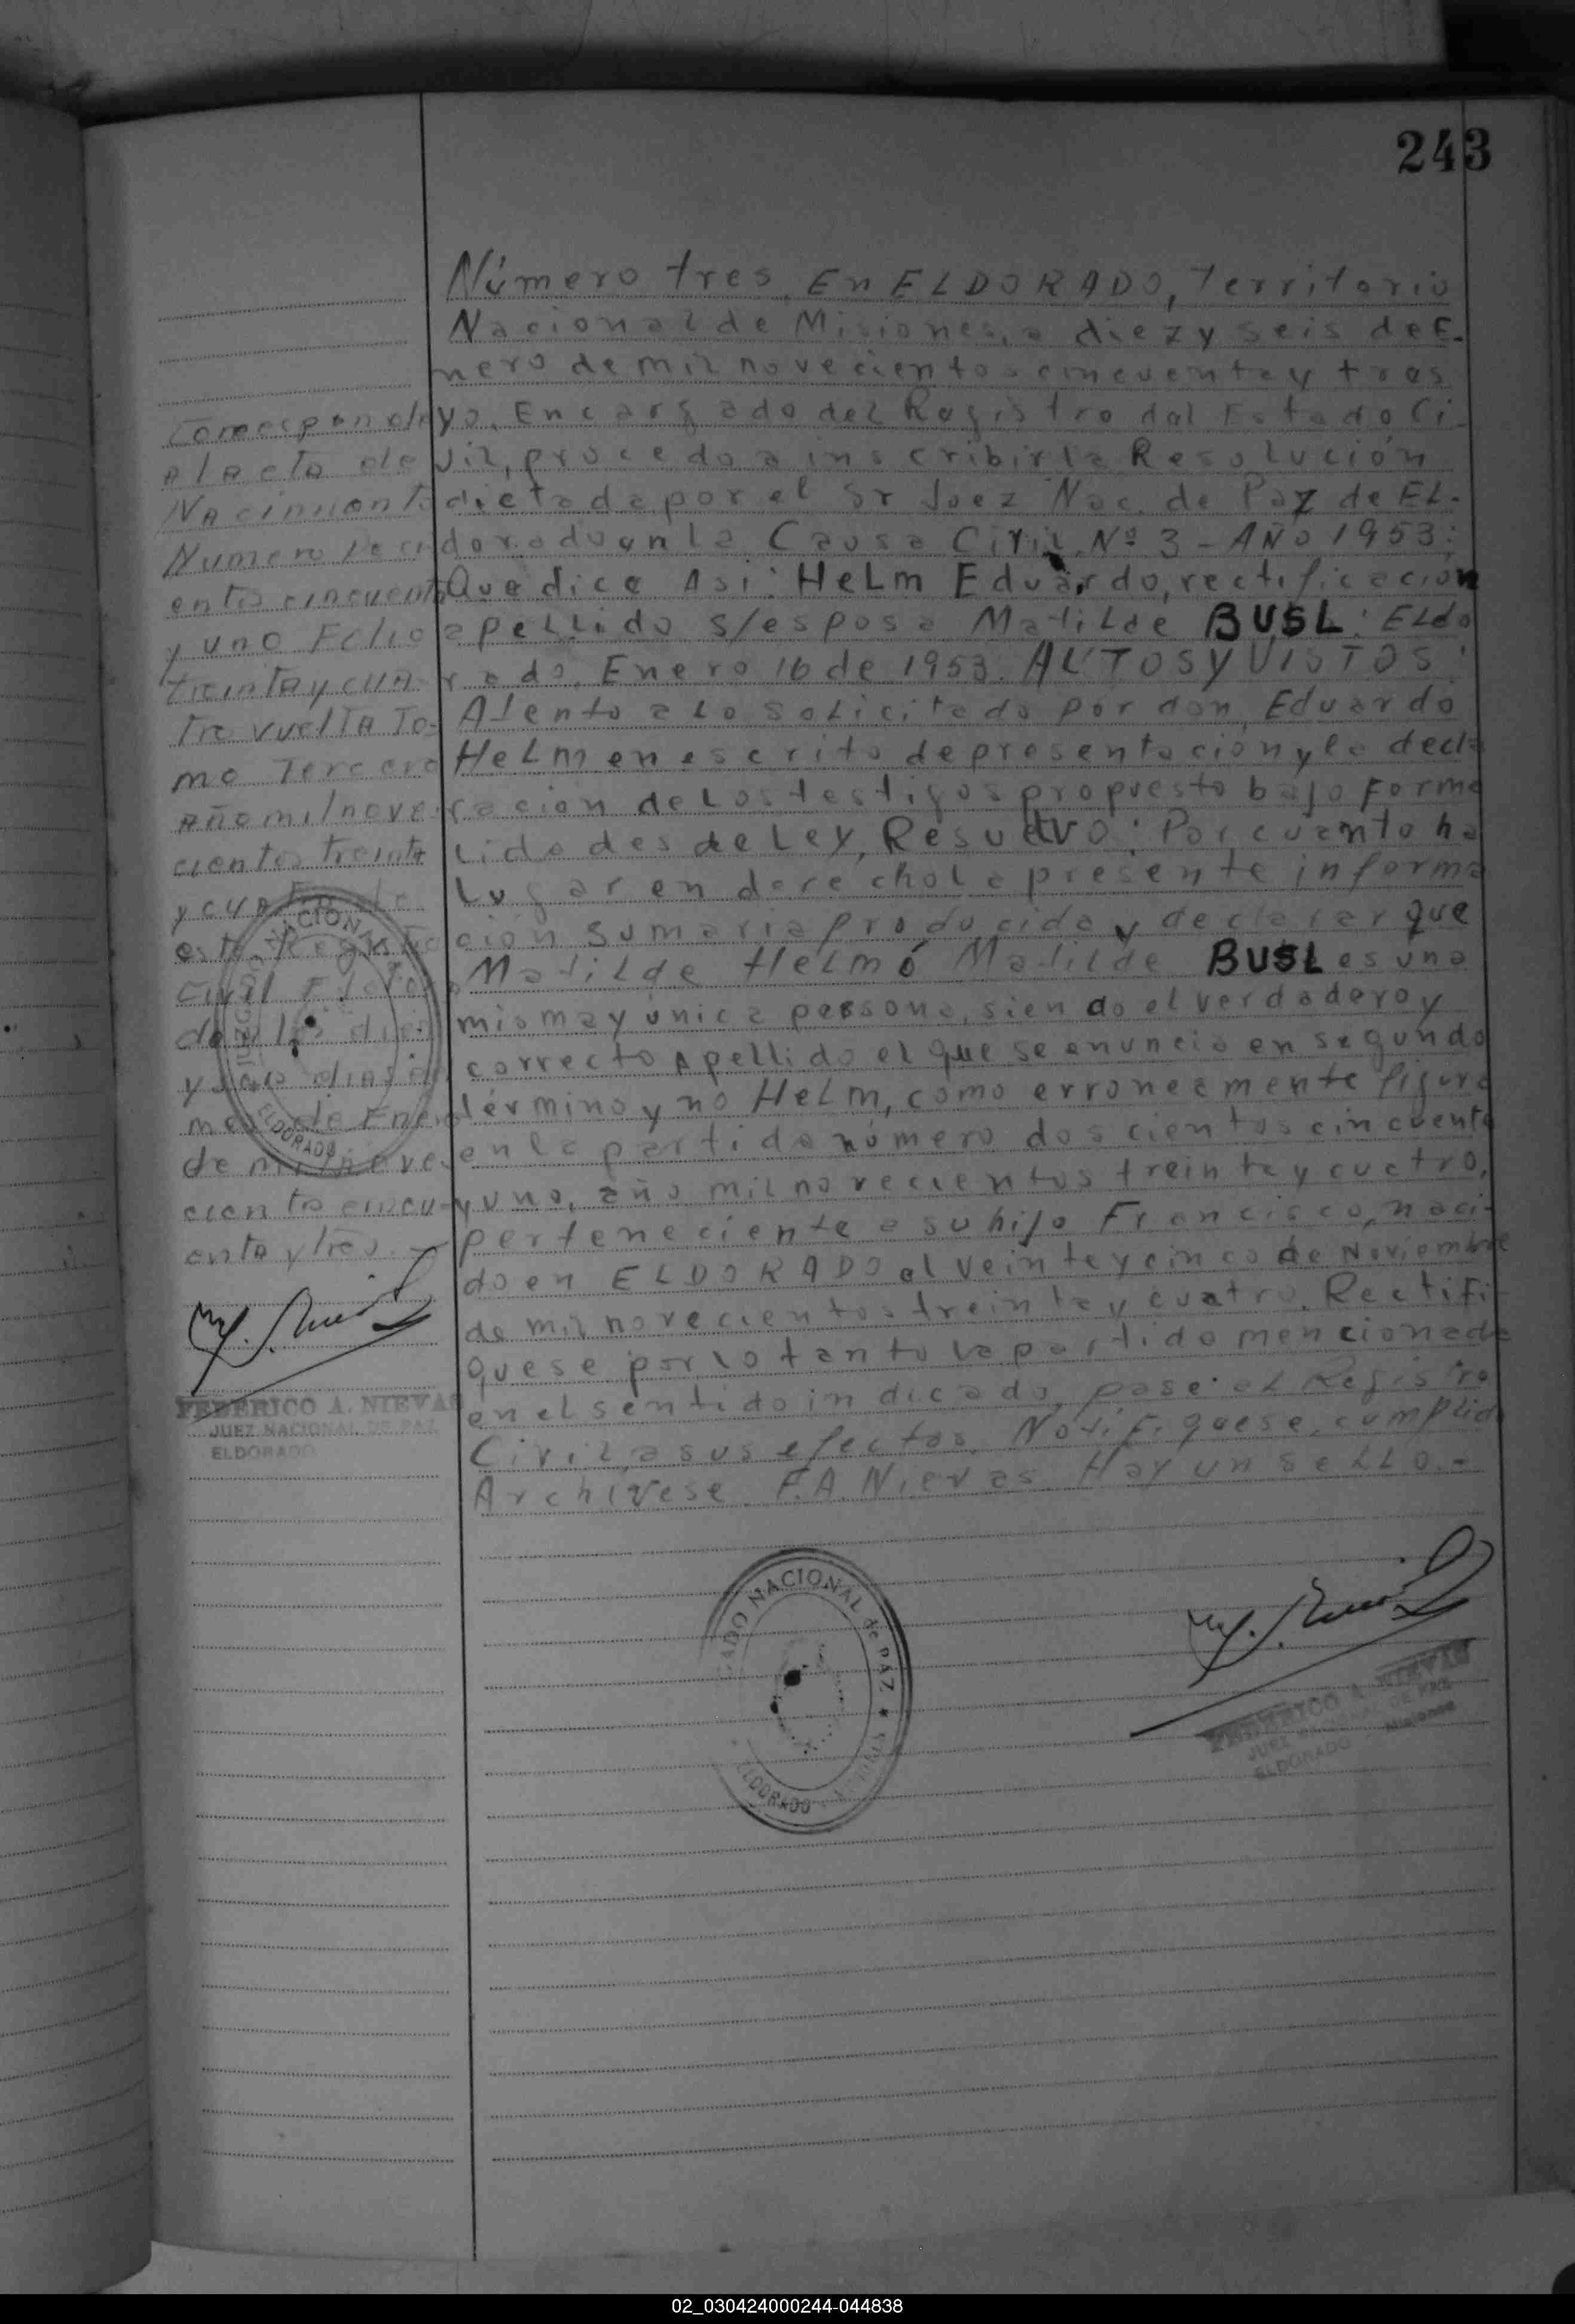 243
Número tres. En ELDORADO, Territorio
Nacional de Misiones, a diez y seis de E-
nero de mil novecientos cincuenta y tres
yo, Encargado del Registro del Estado Ci-
vil, procedo a inscribir la Resolución
dictada por el Sr Juez Nac. de Paz de EL-
dorado en la Causa Civil Nº 3 - AÑO 1953:
Que dice Asi: HeLm Eduardo, rectificacion
apellido s/esposa Matilde BUSL: ELdo
rado, Enero 16 de 1953. AUTOS Y VISTOS:
Atento a lo solicitado por don, Eduardo
HeLm en escrito de presentación y la decla
racion de los testigos propuesto bajo forma
lidades de Ley, Resuelvo: Por cuanto ha
lugar en derecho la presente informa
ción sumaria producida y declarar que
Matilde HeLm ó Matilde BUSL es una
misma y única persona, siendo el verdadero y
correcto apellido el que se anuncia en segundo
término y no HeLm, como erroneamente figura
en la partida número doscientos cincuenta
y uno, año mil novecientos treinta y cuatro,
perteneciente a su hijo Francisco, naci-
do en ELDORADO el veinte y cinco de Noviembre
de mil novecientos treinta y cuatro. Rectifi-
quese por lo tanto la partida mencionada
en el sentido indicado, pase al Registro
Civil, a sus efectos. Notifiquese, cumplido
Archívese. F.A. Nievas. Hay un seLLo.-
Corresponde
al acta de
Nacimiento
Numero Doci
entos cincuenta
y uno Folio
treinta y cua-
tro vuelta To-
mo Tercero
año mil nove-
cientos treinta
y cuatro de
este Registro
Civil
de
y dias del
mes de Enero
de mil nove-
cientos cincu-
enta y tres.-
NACIONAL
ELDORADO
FEDERICO A. NIEVAS
JUEZ NACIONAL DE PAZ
ELDORADO
NACIONAL de PAZ ★
ELDORADO
FEDERICO A. NIEVAS
JUEZ NACIONAL DE PAZ
ELDORADO - Misiones
02_030424000244-044838